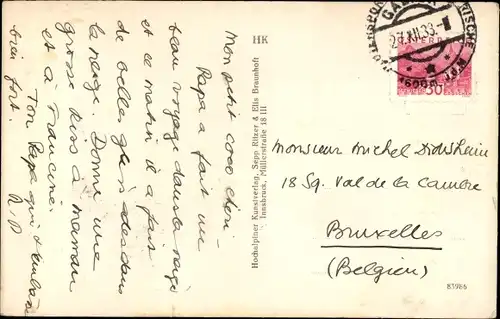 Mon petit coco chéri
Papa a fait un
beau voyage dans la
et ce matin il a fait
de belles dans
la neige. Donne une
grosse kiss à maman
et à Francine.
Ton Papa qui t'embrasse
bien fort.
HK
Hochalpiner Kunstverlag, Sepp Ritzer & Ella Braunhoft
Innsbruck, Müllerstraße 18 III
27.XII.33
30
Monsieur Michel
18 Sq. Val de la Cambre
Bruxelles
(Belgien)
83986